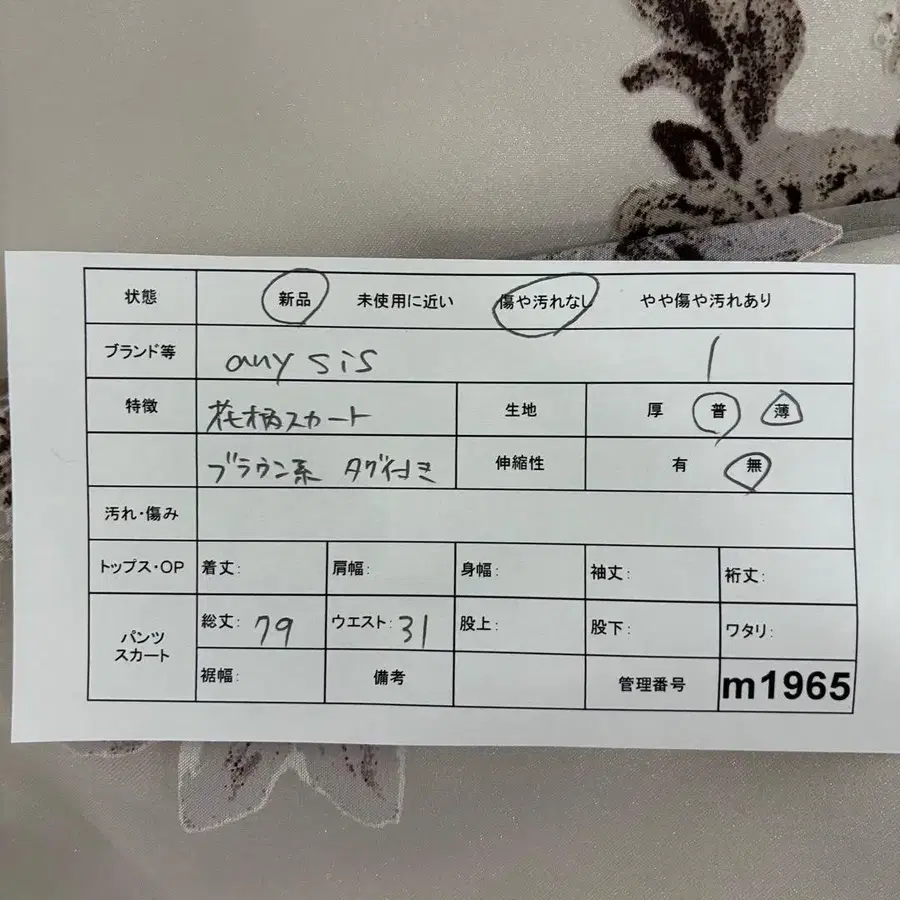 状態 新品 未使用に近い 傷や汚れなし やや傷や汚れあり
ブランド等 any sis 1
特徴 花柄スカート 生地 厚 普 薄
ブラウン系 タグ付き 伸縮性 有 無
汚れ・傷み
トップス・OP 着丈: 肩幅: 身幅: 袖丈: 裄丈:
パンツ スカート 総丈: 79 ウエスト: 31 股上: 股下: ワタリ:
裾幅: 備考 管理番号 m1965